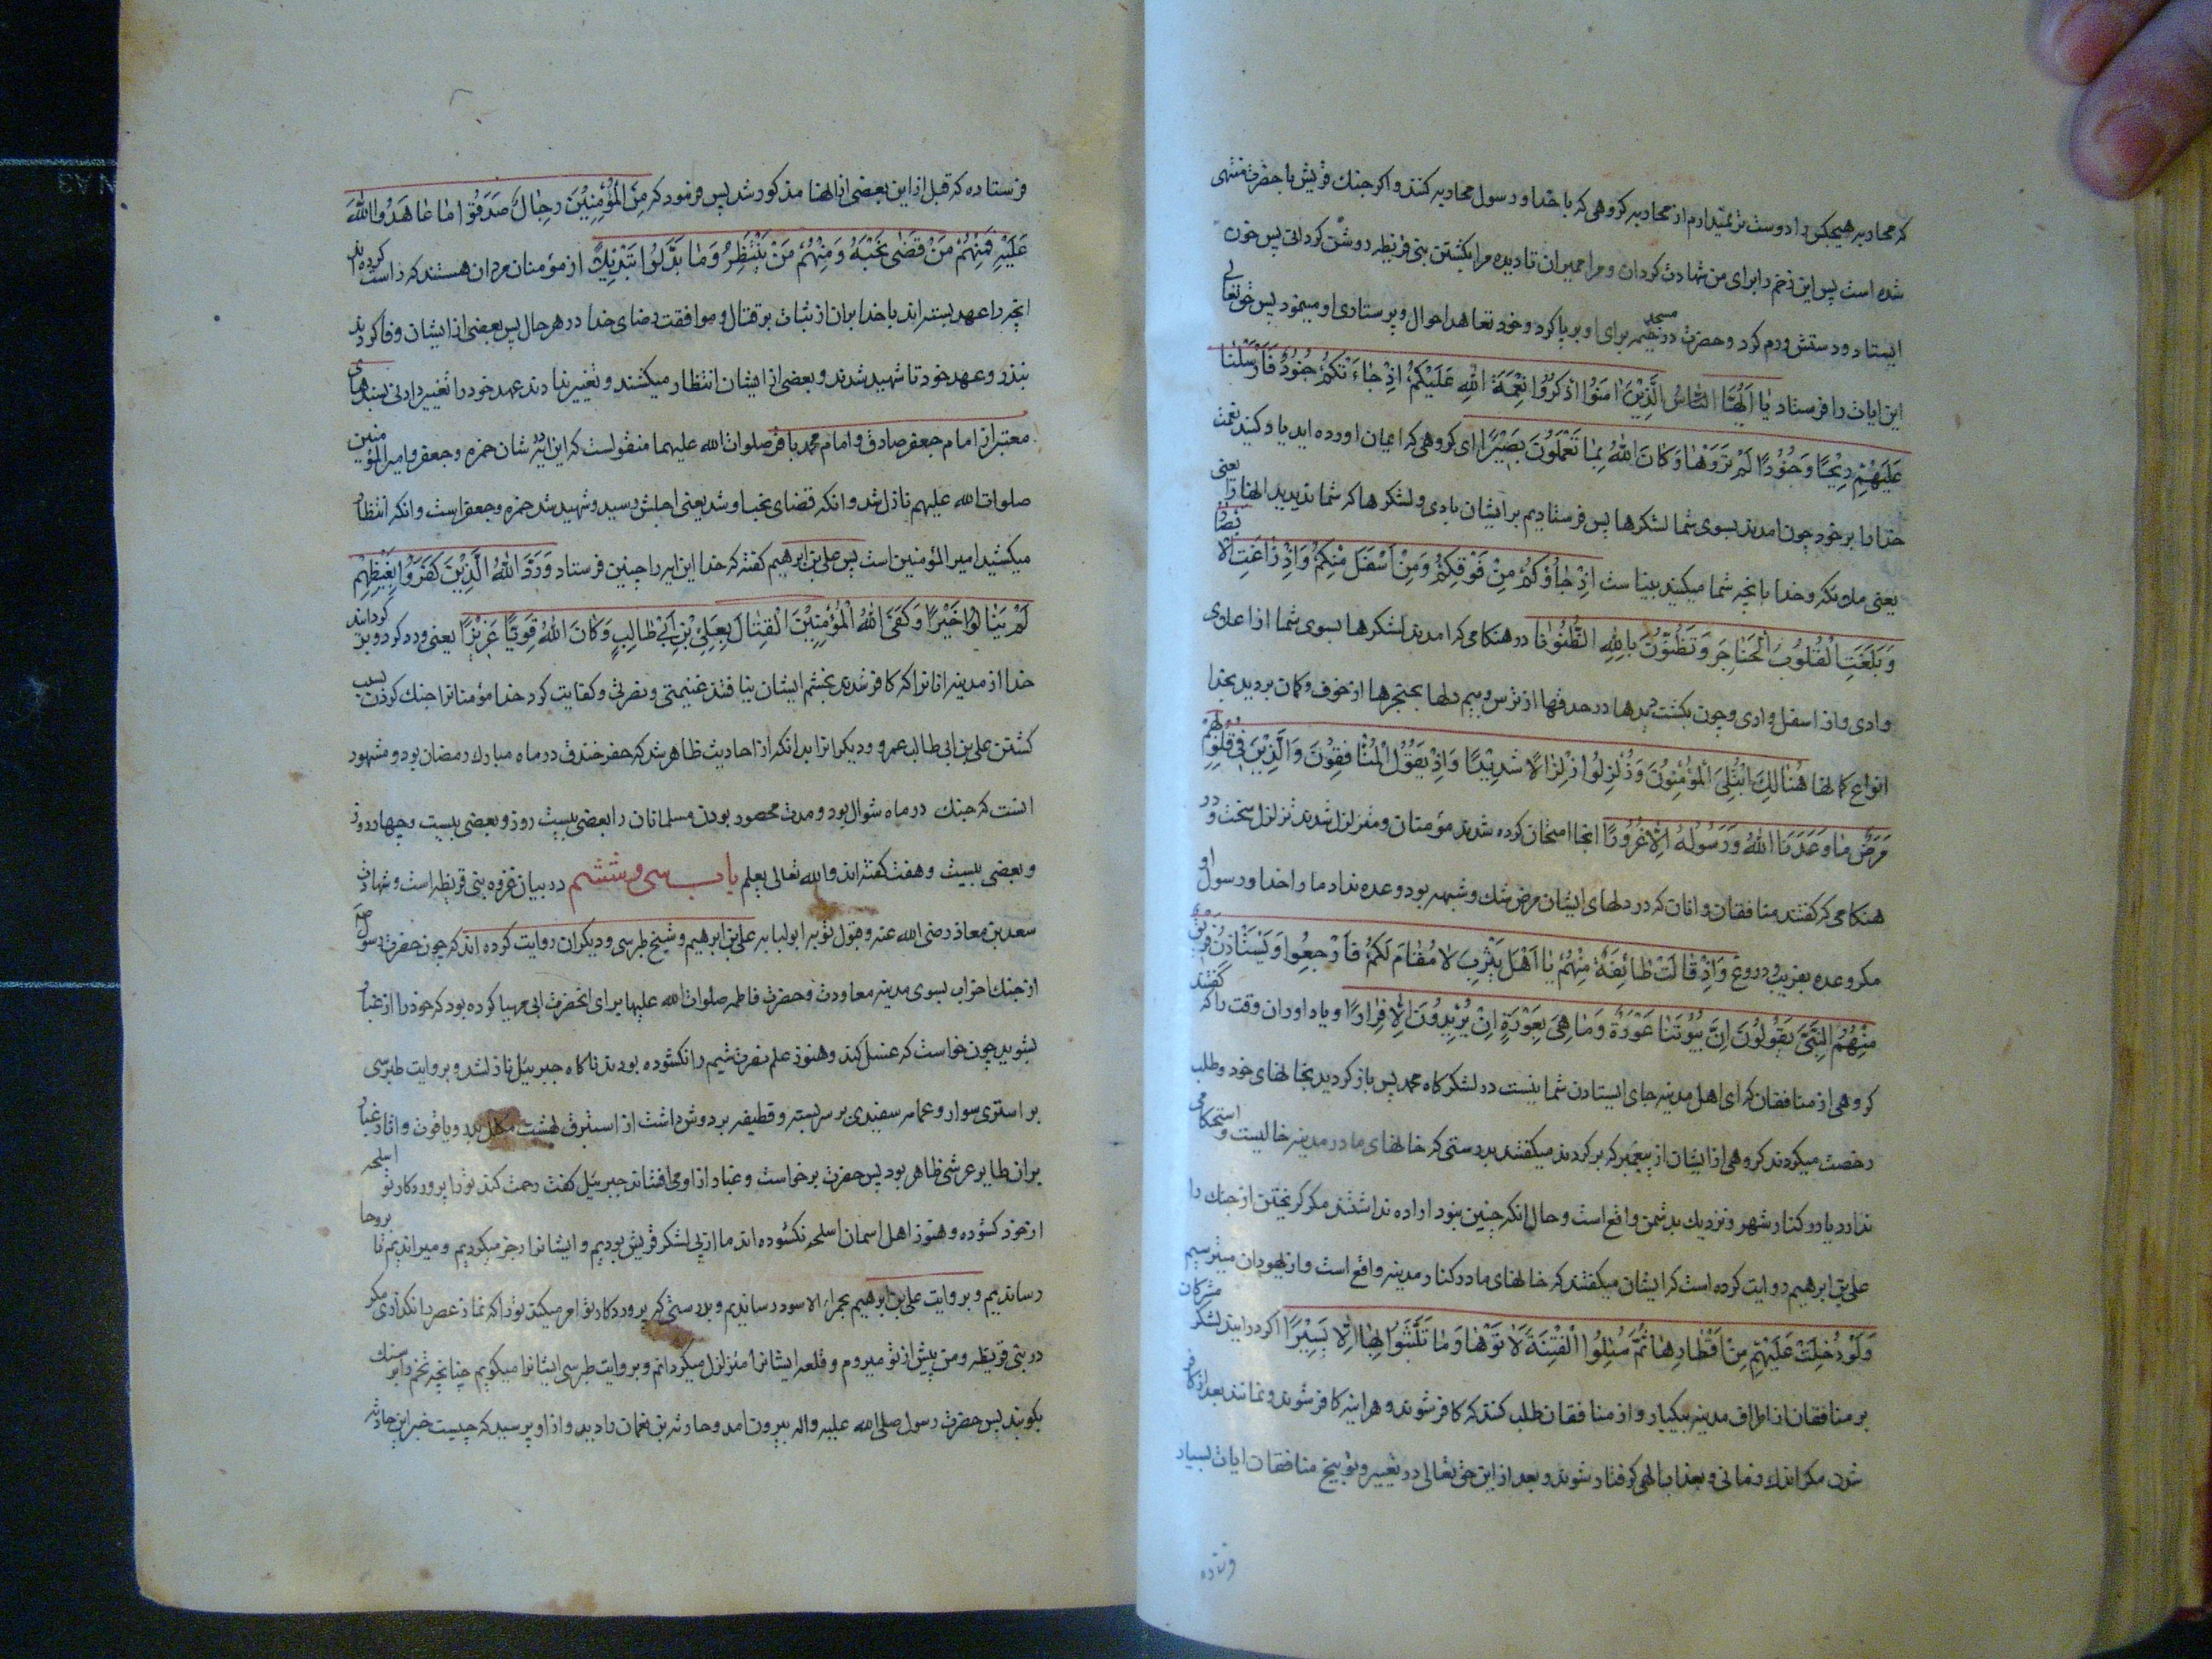 که محاربه هیچکس را دوست تر نمیدارم از محاربه کروهی که با خدا و رسول محاربه کنند و اکر جنك قریش با حضرت منتهی
شده است پس این زخم را برای من شهادت کردان و مرا نمیران تا دیده مرا بکشتن بنی قریظه روشن کردانی پس خون
ایستاد و دستش ورم کرد و حضرت در مسجد خیمه برای او بر پا کرد و خود تعاهد احوال و پرستاری او مینمود پس حق تعالی
این ایات را فرستاد یا اَیُّهَا الَّذِیْنَ اٰمَنُوا اذْکُرُوا نِعْمَةَ اللهِ عَلَیْکُمْ اِذْ جٰاءَتْکُمْ جُنُودٌ فَاَرْسَلْنٰا
عَلَیْهِمْ رِیْحًا وَ جُنُوْدًا لَمْ تَرَوْهٰا وَکٰانَ اللهُ بِمٰا تَعْمَلُوْنَ بَصِیْرًا ای کروهی که ایمان اورده اید یاد کنید نعمت
خدا را بر خود چون امدند بسوی شما لشکرها پس فرستادیم بر ایشان بادی و لشکرها که شما ندیدید انها را یعنی
یعنی ملائکه و خدا بانچه شما میکنید بیناست اِذْ جٰاؤُکُمْ مِنْ فَوْقِکُمْ وَمِنْ اَسْفَلَ مِنْکُمْ وَاِذْ زٰاغَتِ الْاَبْصٰارُ
وَبَلَغَتِ الْقُلُوْبُ الْحَنٰاجِرَ وَتَظُنُّوْنَ بِاللهِ الظُّنُوْنٰا در هنکامی که امدند لشکرها بسوی شما از اعلای
وادی و از اسفل وادی و چون بکشت دیدها در حدقها از ترس و بیم دلها بحنجرها از خوف و کمان بردید بخدا
انواع کمانها هُنٰالِكَ ابْتُلِیَ الْمُؤْمِنُوْنَ وَزُلْزِلُوا زِلْزٰالًا شَدِیْدًا وَاِذْ یَقُوْلُ الْمُنٰافِقُوْنَ وَالَّذِیْنَ فِی قُلُوْبِهِمْ
مَرَضٌ مٰا وَعَدَنَا اللهُ وَرَسُوْلُهُ اِلّٰا غُرُوْرًا انجا امتحان کرده شدند مؤمنان و متزلزل شدند تزلزل سخت و در
هنکامی که کفتند منافقان و انان که در دلهای ایشان مرض شك و شبهه بود وعده نداد ما را خدا و رسول او
مکر وعده بفریب و دروغ وَاِذْ قٰالَتْ طٰائِفَةٌ مِنْهُمْ یٰا اَهْلَ یَثْرِبَ لٰا مُقٰامَ لَکُمْ فَارْجِعُوا وَیَسْتَاْذِنُ فَرِیْقٌ
مِنْهُمُ النَّبِیَّ یَقُوْلُوْنَ اِنَّ بُیُوْتَنٰا عَوْرَةٌ وَمٰا هِیَ بِعَوْرَةٍ اِنْ یُرِیْدُوْنَ اِلّٰا فِرٰارًا و یاد اور ان وقت را که کفتند
کروهی از منافقان که ای اهل مدینه جای ایستادن شما نیست در لشکرکاه محمد پس باز کردید بخانهای خود و طلب
رخصت میکردند کروهی از ایشان از پیغمبر که بر کردند میکفتند بدرستی که خانهای ما در مدینه خالیست و استحکامی
ندارد یا در کنار شهر و نزدیك بدشمن واقع است و حال انکه چنین نبود اراده نداشتند مکر کریختن از جنك را
علی بن ابرهیم روایت کرده است که ایشان میکفتند که خانهای ما در کنار مدینه واقع است و از یهودان میترسیم
وَلَوْ دُخِلَتْ عَلَیْهِمْ مِنْ اَقْطٰارِهٰا ثُمَّ سُئِلُوا الْفِتْنَةَ لَاٰتَوْهٰا وَمٰا تَلَبَّثُوا بِهٰا اِلّٰا یَسِیْرًا اکر درایند لشکر مشرکان
بر منافقان از اطراف مدینه بیکبار و از منافقان طلب کنند که کافر شوند و هراینه کافر شوند و نمانند بعد از کافر
شدن مکر اندك زمانی و بعذاب الهی کرفتار شوند و بعد از این حق تعالی در تغییر و توبیخ منافقان ایات بسیار
فرستاده
فرستاده که قبل از این بعضی از انها مذکور شد پس فرمود که مِنَ الْمُؤْمِنِیْنَ رِجٰالٌ صَدَقُوا مٰا عٰاهَدُوا اللهَ
عَلَیْهِ فَمِنْهُمْ مَنْ قَضٰی نَحْبَهُ وَمِنْهُمْ مَنْ یَنْتَظِرُ وَمٰا بَدَّلُوا تَبْدِیْلًا از مؤمنان مردان هستند که راست کرده اند
انچه را عهد بسته اند با خدا بران از ثبات بر قتال و موافقت رضای خدا در هر حال پس بعضی از ایشان وفا کردند
بنذر و عهد خود تا شهید شدند و بعضی از ایشان انتظار میکشند و تغییر ندادند عهد خود را تغییر دادنی بسندهای
معتبر از امام جعفر صادق و امام محمد باقر صلوات الله علیهما منقولست که این ایه در شان حمزه و جعفر و امیر المؤمنین
صلوات الله علیهم نازل شد و انکه قضای نحب او شد یعنی اجلش رسید و شهید شد حمزه و جعفر است و انکه انتظار
میکشید امیر المؤمنین است پس علی بن ابرهیم کفته که خدا این ایه را چنین فرستاد وَرَدَّ اللهُ الَّذِیْنَ کَفَرُوا بِغَیْظِهِمْ
لَمْ یَنٰالُوا خَیْرًا وَکَفَی اللهُ الْمُؤْمِنِیْنَ الْقِتٰالَ بِعَلِیِّ بْنِ اَبِیْ طٰالِبٍ وَکٰانَ اللهُ قَوِیًّا عَزِیْزًا یعنی ورد کرد و بر کردانید
خدا از مدینه انانرا که کافر شدند بخشم ایشان نیافتند غنیمتی و نصرتی و کفایت کرد خدا مؤمنانرا جنك کردن بسبب
کشتن علی بن ابی طالب عمرو و دیکرانرا بدانکه از احادیث ظاهر شد که حفر خندق در ماه مبارك رمضان بود و مشهور
انست که جنك در ماه شوال بود و مدت محصور بودن مسلمانان را بعضی بیست روز و بعضی بیست و چهار روز
و بعضی بیست و هفت کفته اند والله تعالی یعلم باب سی و ششم در بیان غزوه بنی قریظه است و شهادت
سعد بن معاذ رضی الله عنه و قبول توبه ابولبابه علی بن ابرهیم و شیخ طبرسی و دیکران روایت کرده اند که چون حضرت رسول صلعم
از جنك احزاب بسوی مدینه معاودت و حضرت فاطمه صلوات الله علیها برای انحضرت ابی مهیا کرده بود که خود را از غبار
بشوید چون خواست که غسل کند و هنوز علم نصرت شیم را نکشوده بودند ناکاه جبرئیل نازل شد و بروایت طبرسی
بر استری سوار و عمامه سفیدی بر سر بسته و قطیفه بر دوش داشت از استبرق بهشت مکلل بدر و یاقوت و اثار غبار
بران طایر عرشی ظاهر بود پس حضرت برخواست و غبار از او می افشاند جبرئیل کفت رحمت کند تو را پروردکار تو اسلحه
از خود کشوده و هنوز اهل اسمان اسلحه نکشوده اند ما از پی لشکر قریش بودیم و ایشانرا زجر میکردیم و میراندیم تا بروحا
رساندیم و بروایت علی بن ابرهیم بحمراء الاسود رساندیم و بدرستی که پروردکار تو امر میکند تو را که نماز عصر را نکذاری مکر
در بنی قریظه و من پیش از تو میروم و قلعه ایشانرا متزلزل میکردانم و بروایت طبرسی ایشانرا میکوبم چنانچه تخم را بر سنك
بکوبند پس حضرت رسول صلی الله علیه واله بیرون امد و حارثه بن نعمان را دید و از او پرسید که چیست خبر این حادثه